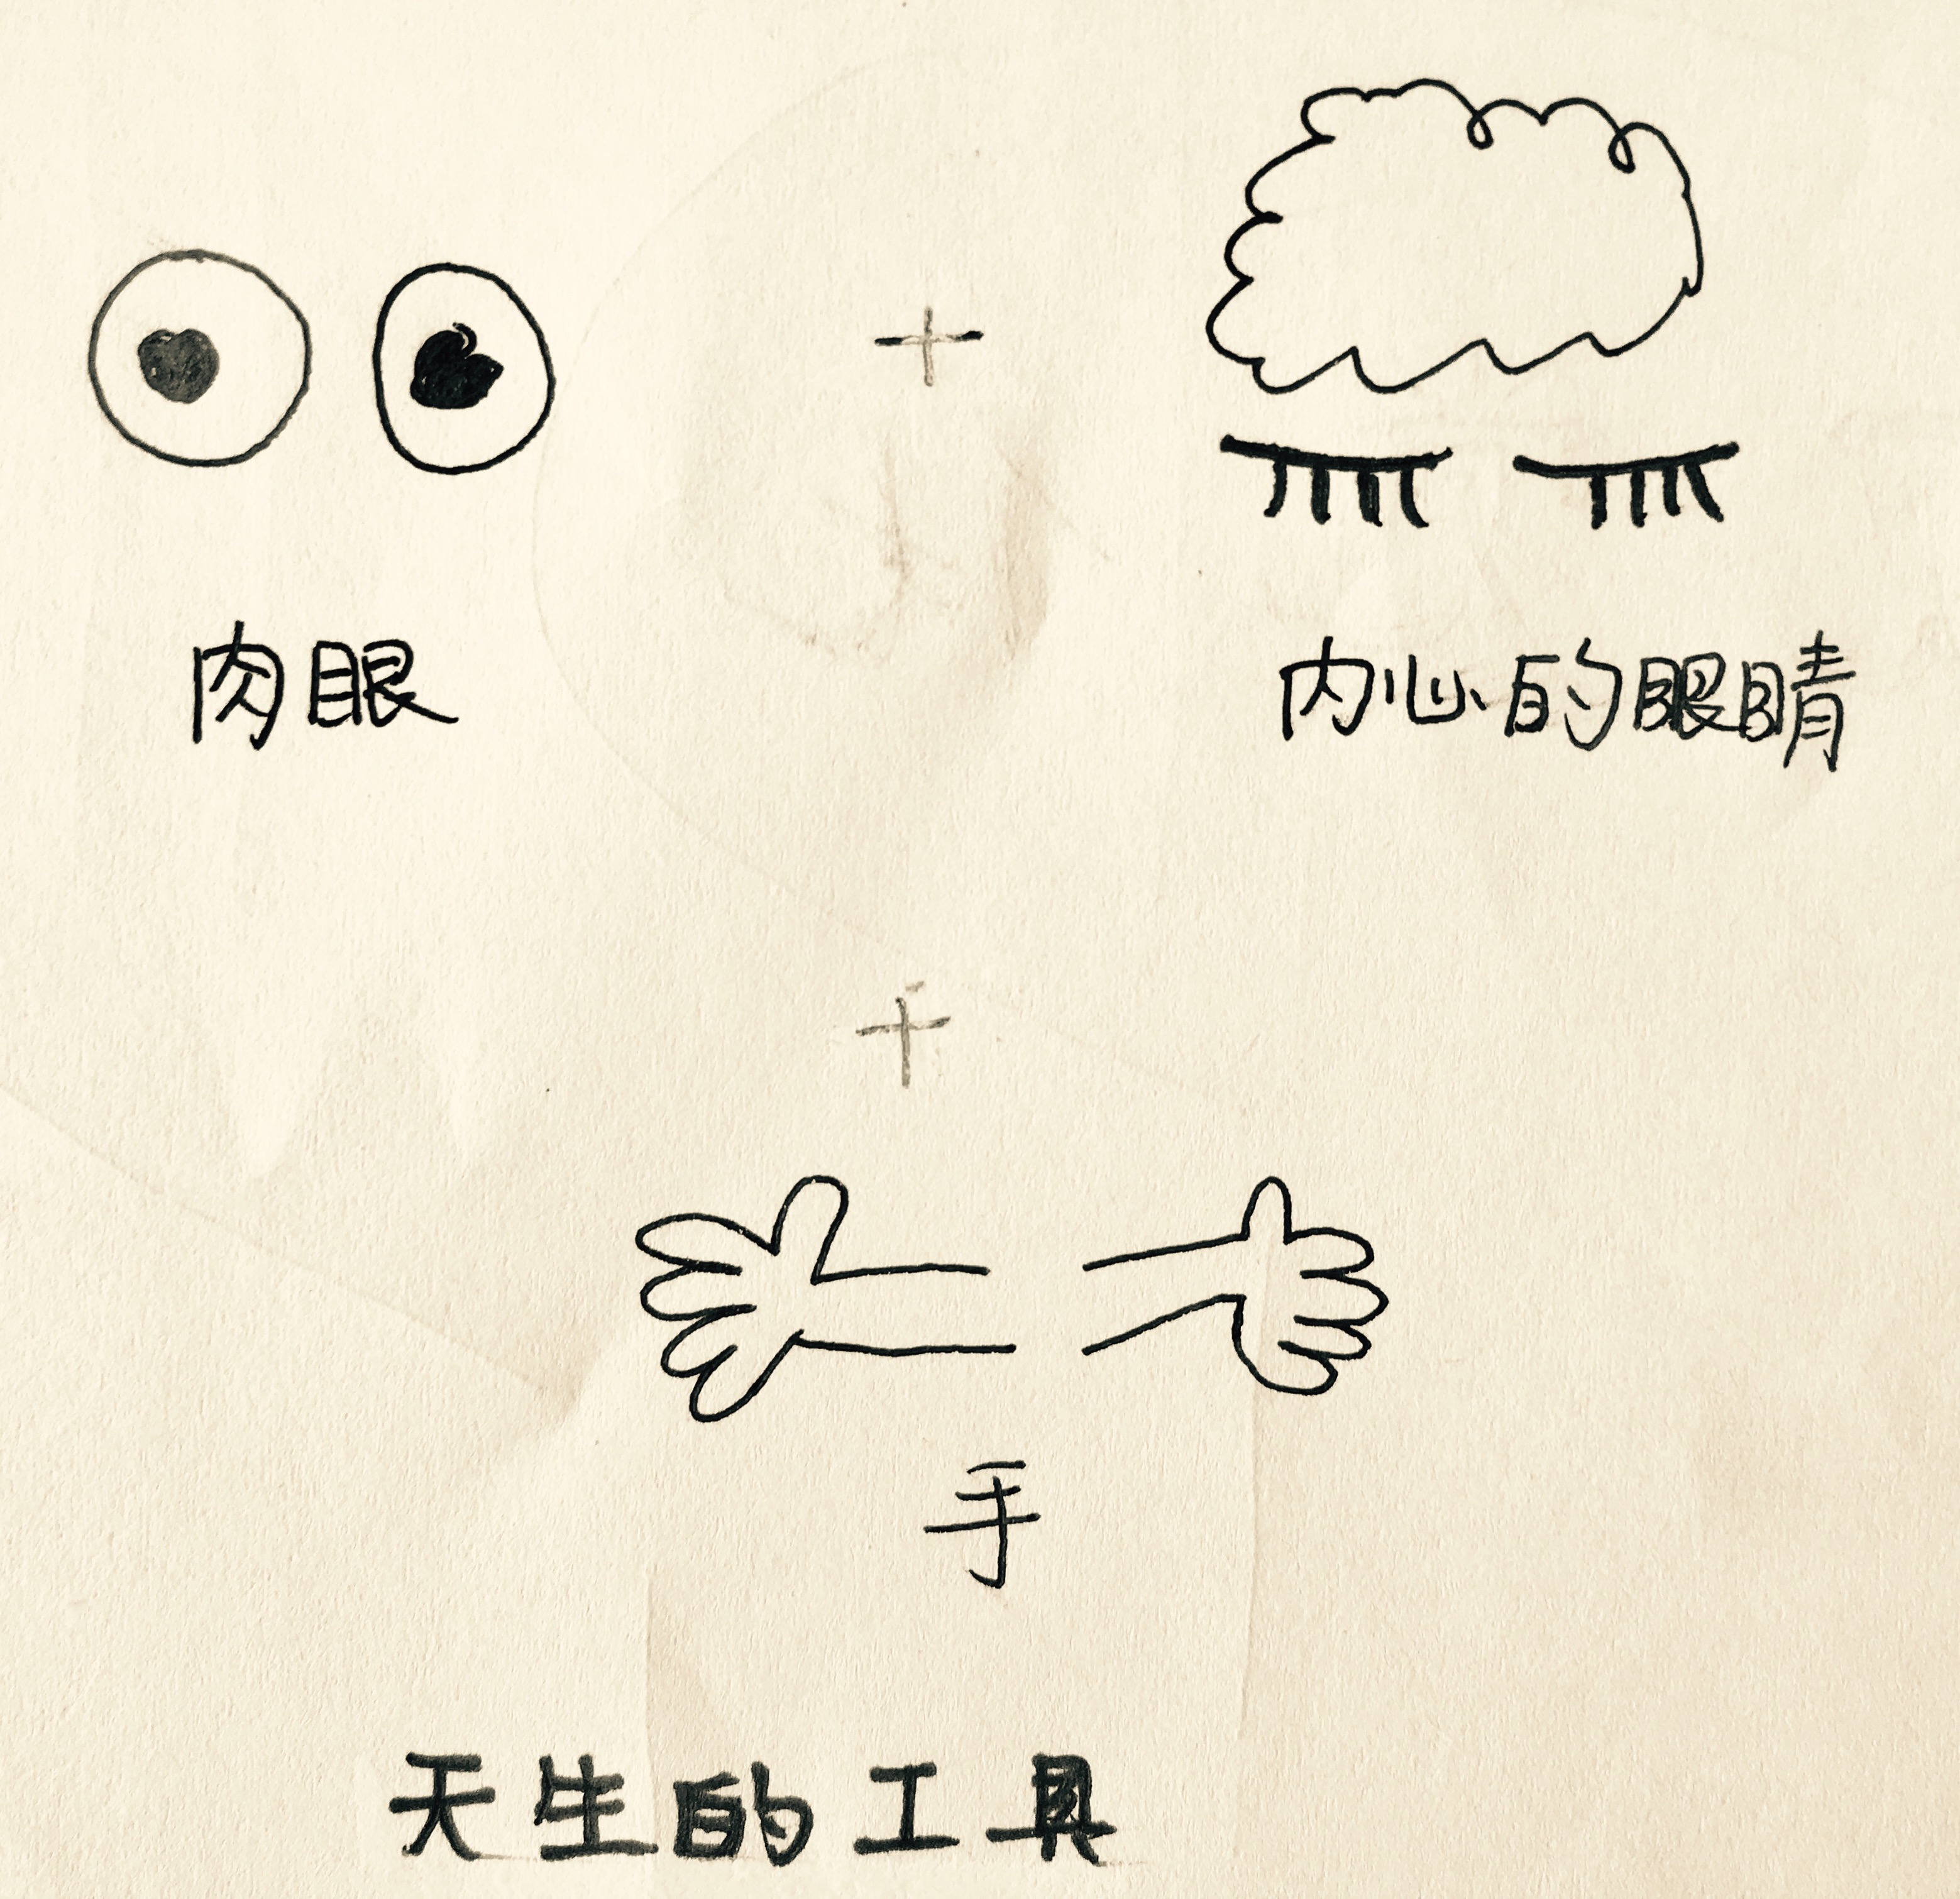 +
肉眼
内心的眼睛
+
手
天生的工具